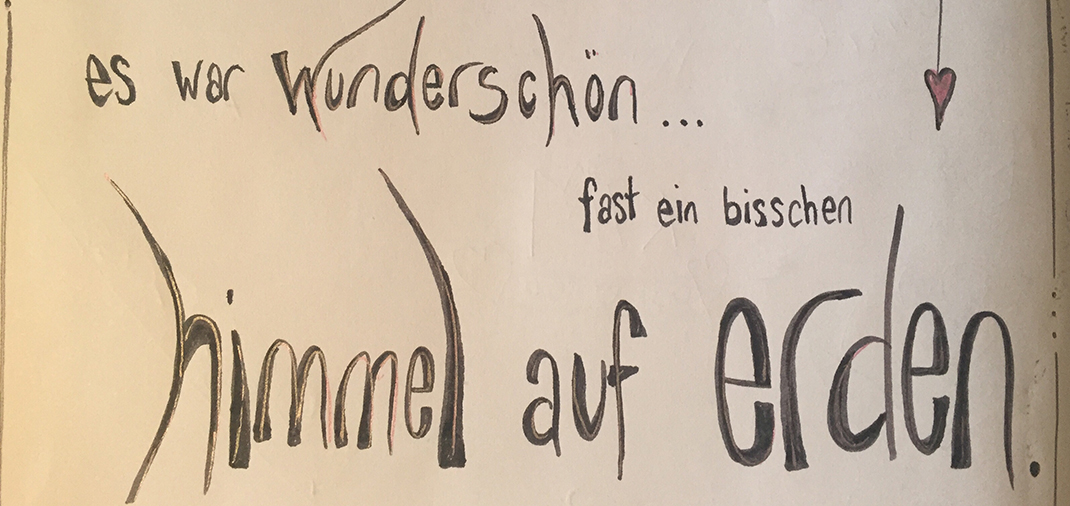 es war wunderschön...
fast ein bisschen
himmel auf erden.